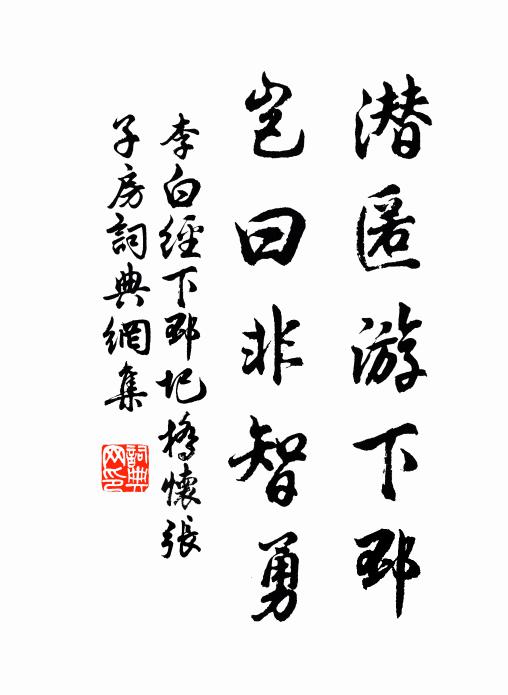 潜匿游下邳
岂曰非智勇
李白經下邳圯橋懷張
子房詞典網集
詞典网印